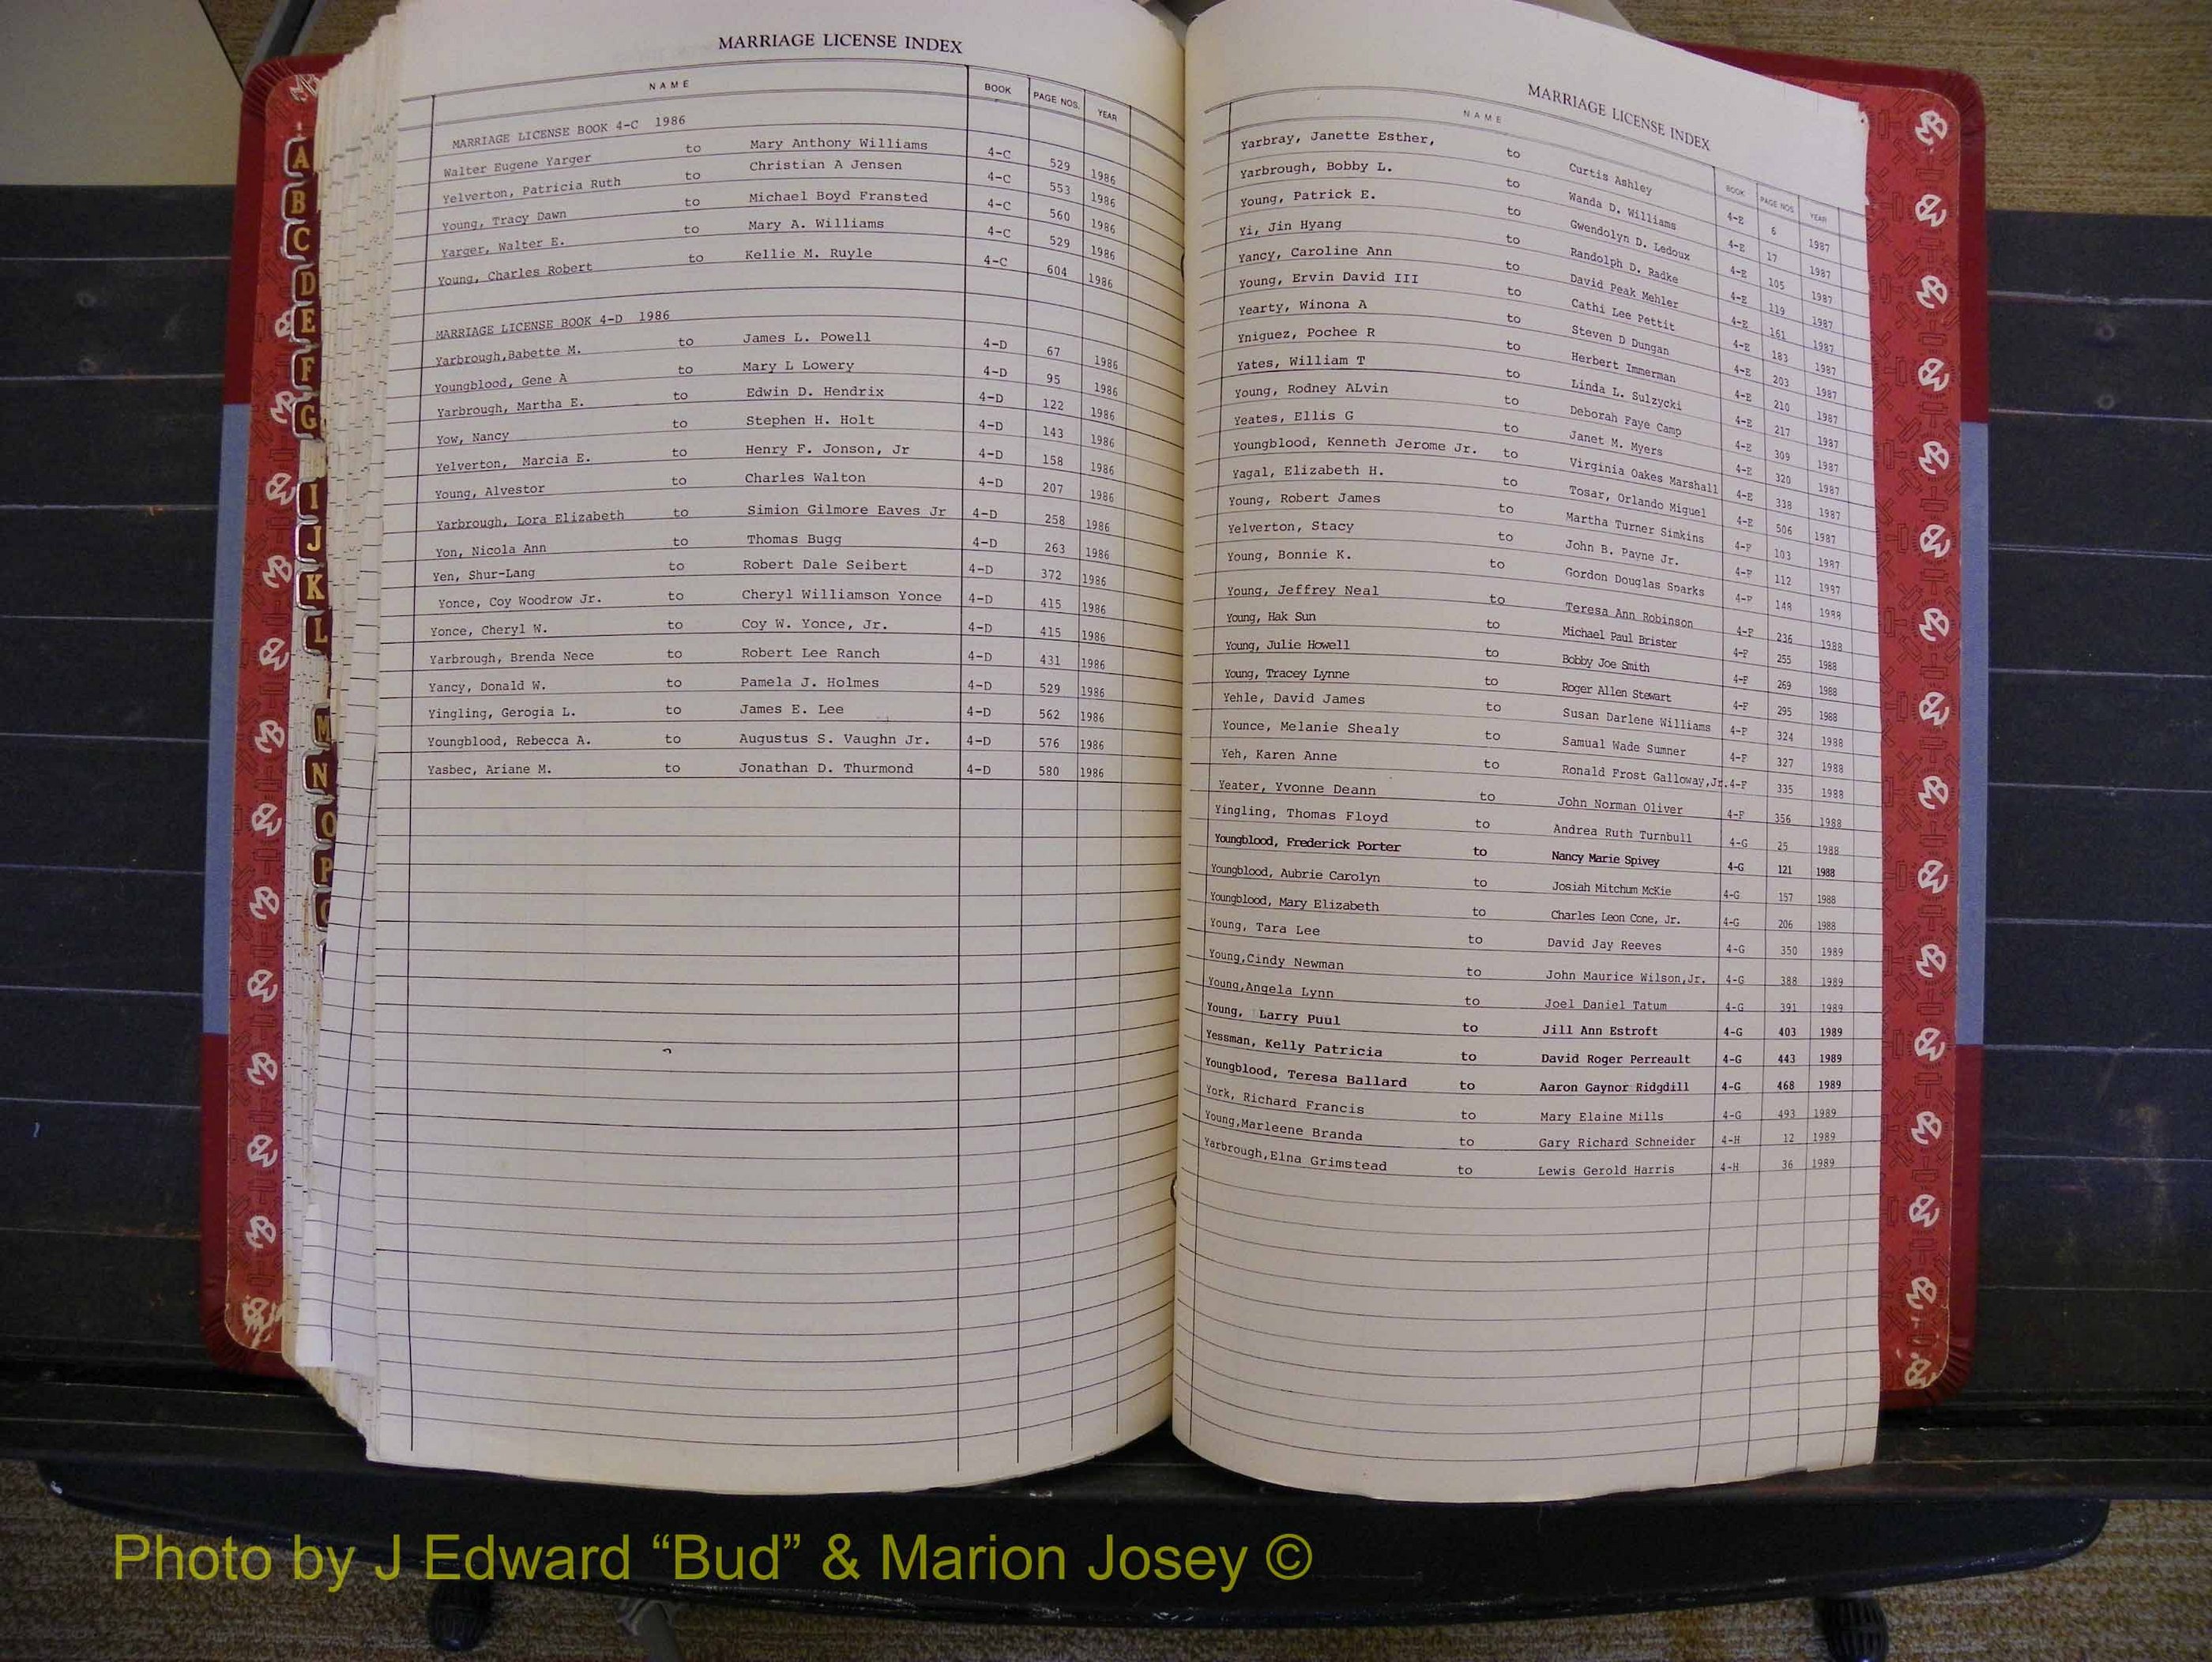 MARRIAGE LICENSE INDEX
NAME BOOK PAGE NOS. YEAR
MARRIAGE LICENSE BOOK 4-C 1986
Walter Eugene Yarger to Mary Anthony Williams 4-C 529 1986
Yelverton, Patricia Ruth to Christian A Jensen 4-C 553 1986
Young, Tracy Dawn to Michael Boyd Fransted 4-C 560 1986
Yarger, Walter E. to Mary A. Williams 4-C 529 1986
Young, Charles Robert to Kellie M. Ruyle 4-C 604 1986
MARRIAGE LICENSE BOOK 4-D 1986
Yarbrough,Babette M. to James L. Powell 4-D 67 1986
Youngblood, Gene A to Mary L Lowery 4-D 95 1986
Yarbrough, Martha E. to Edwin D. Hendrix 4-D 122 1986
Yow, Nancy to Stephen H. Holt 4-D 143 1986
Yelverton, Marcia E. to Henry F. Jonson, Jr 4-D 158 1986
Young, Alvestor to Charles Walton 4-D 207 1986
Yarbrough, Lora Elizabeth to Simion Gilmore Eaves Jr 4-D 258 1986
Yon, Nicola Ann to Thomas Bugg 4-D 263 1986
Yen, Shur-Lang to Robert Dale Seibert 4-D 372 1986
Yonce, Coy Woodrow Jr. to Cheryl Williamson Yonce 4-D 415 1986
Yonce, Cheryl W. to Coy W. Yonce, Jr. 4-D 415 1986
Yarbrough, Brenda Nece to Robert Lee Ranch 4-D 431 1986
Yancy, Donald W. to Pamela J. Holmes 4-D 529 1986
Yingling, Gerogia L. to James E. Lee 4-D 562 1986
Youngblood, Rebecca A. to Augustus S. Vaughn Jr. 4-D 576 1986
Yasbec, Ariane M. to Jonathan D. Thurmond 4-D 580 1986
MARRIAGE LICENSE INDEX
NAME BOOK PAGE NOS. YEAR
Yarbray, Janette Esther, to Curtis Ashley 4-E 6 1987
Yarbrough, Bobby L. to Wanda D. Williams 4-E 17 1987
Young, Patrick E. to Gwendolyn D. Ledoux 4-E 105 1987
Yi, Jin Hyang to Randolph D. Radke 4-E 119 1987
Yancy, Caroline Ann to David Peak Mehler 4-E 161 1987
Young, Ervin David III to Cathi Lee Pettit 4-E 183 1987
Yearty, Winona A to Steven D Dungan 4-E 203 1987
Yniguez, Pochee R to Herbert Immerman 4-E 210 1987
Yates, William T to Linda L. Sulzycki 4-E 217 1987
Young, Rodney ALvin to Deborah Faye Camp 4-E 309 1987
Yeates, Ellis G to Janet M. Myers 4-E 320 1987
Youngblood, Kenneth Jerome Jr. to Virginia Oakes Marshall 4-E 338 1987
Yagal, Elizabeth H. to Tosar, Orlando Miguel 4-E 506 1987
Young, Robert James to Martha Turner Simkins 4-F 103 1987
Yelverton, Stacy to John B. Payne Jr. 4-F 112 1987
Young, Bonnie K. to Gordon Douglas Sparks 4-F 148 1988
Young, Jeffrey Neal to Teresa Ann Robinson 4-F 236 1988
Young, Hak Sun to Michael Paul Brister 4-F 255 1988
Young, Julie Howell to Bobby Joe Smith 4-F 269 1988
Young, Tracey Lynne to Roger Allen Stewart 4-F 295 1988
Yehle, David James to Susan Darlene Williams 4-F 324 1988
Younce, Melanie Shealy to Samual Wade Sumner 4-F 327 1988
Yeh, Karen Anne to Ronald Frost Galloway,Jr. 4-F 335 1988
Yeater, Yvonne Deann to John Norman Oliver 4-F 356 1988
Yingling, Thomas Floyd to Andrea Ruth Turnbull 4-G 25 1988
Youngblood, Frederick Porter to Nancy Marie Spivey 4-G 121 1988
Youngblood, Aubrie Carolyn to Josiah Mitchum McKie 4-G 157 1988
Youngblood, Mary Elizabeth to Charles Leon Cone, Jr. 4-G 206 1988
Young, Tara Lee to David Jay Reeves 4-G 350 1989
Young,Cindy Newman to John Maurice Wilson,Jr. 4-G 388 1989
Young,Angela Lynn to Joel Daniel Tatum 4-G 391 1989
Young, Larry Puul to Jill Ann Estroft 4-G 403 1989
Yessman, Kelly Patricia to David Roger Perreault 4-G 443 1989
Youngblood, Teresa Ballard to Aaron Gaynor Ridgdill 4-G 468 1989
York, Richard Francis to Mary Elaine Mills 4-G 493 1989
Young,Marleene Branda to Gary Richard Schneider 4-H 12 1989
Yarbrough,Elna Grimstead to Lewis Gerold Harris 4-H 36 1989
A
B
C
D
E
F
G
I
J
K
L
M
N
O
P
Photo by J Edward “Bud” & Marion Josey ©